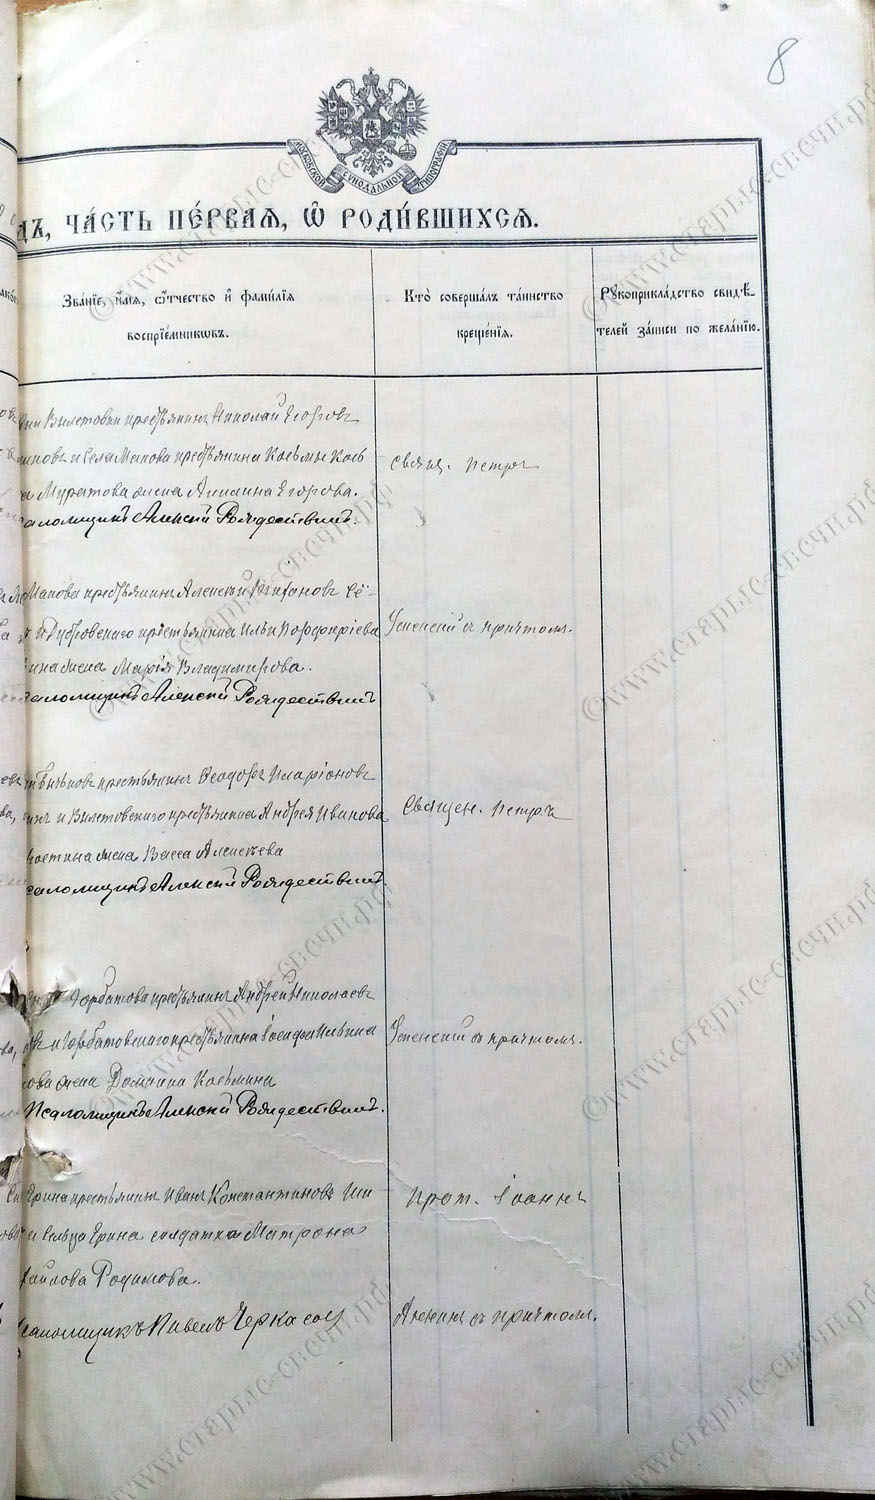 8
МОСКОВСКОЙ СѴНОДАЛЬНОЙ ТИПОГРАФІИ
дъ, ча́сть пе́рваѧ, ѡ҆ роди́вшихсѧ.
Зва́нїе, и҆́мѧ, ѻ҆́тчество и҆ фами́лїѧ
воспрїе́мникѡвъ.
Кто̀ соверша́лъ та́инство
креще́нїѧ.
Рꙋкоприкла́дство свидѣ́-
телей за́писи по жела́нїю.
Вилтовки крестьянинъ Николай Егоровъ
и села Макова крестьянина Косьмы Кось
Муратова жена Акилина Егорова.
саломщикъ Алексій Рождествинъ.
Свящ. Петръ
Макова крестьянинъ Алексѣй
Дубровскаго крестьянина Ильи Порфиріева
жена Марія Владимирова.
саломщикъ Алексій Рождествинъ
Успенскій съ причтомъ.
крестьянинъ Ѳеодоръ Иларіоновъ
и Вилтовскаго крестьянина Андрея Иванова
жена Васса Алексѣева
саломщикъ Алексій Рождествинъ.
Священ. Петръ
Горбатова крестьянинъ Андрей Николаевъ
и Горбатовскаго крестьянина Іосифа Ильина
жена Домника Косьмина
Псаломщикъ Алексій Рождествинъ.
Успенскій съ причтомъ.
Ерина крестьянинъ Иванъ Константиновъ
и сельца Ерина солдатка Матрона
хайлова Родимова.
саломщикъ Павелъ Черкасов
Прот. Іоаннъ
съ причтомъ.
©www.старые-свечи.рф